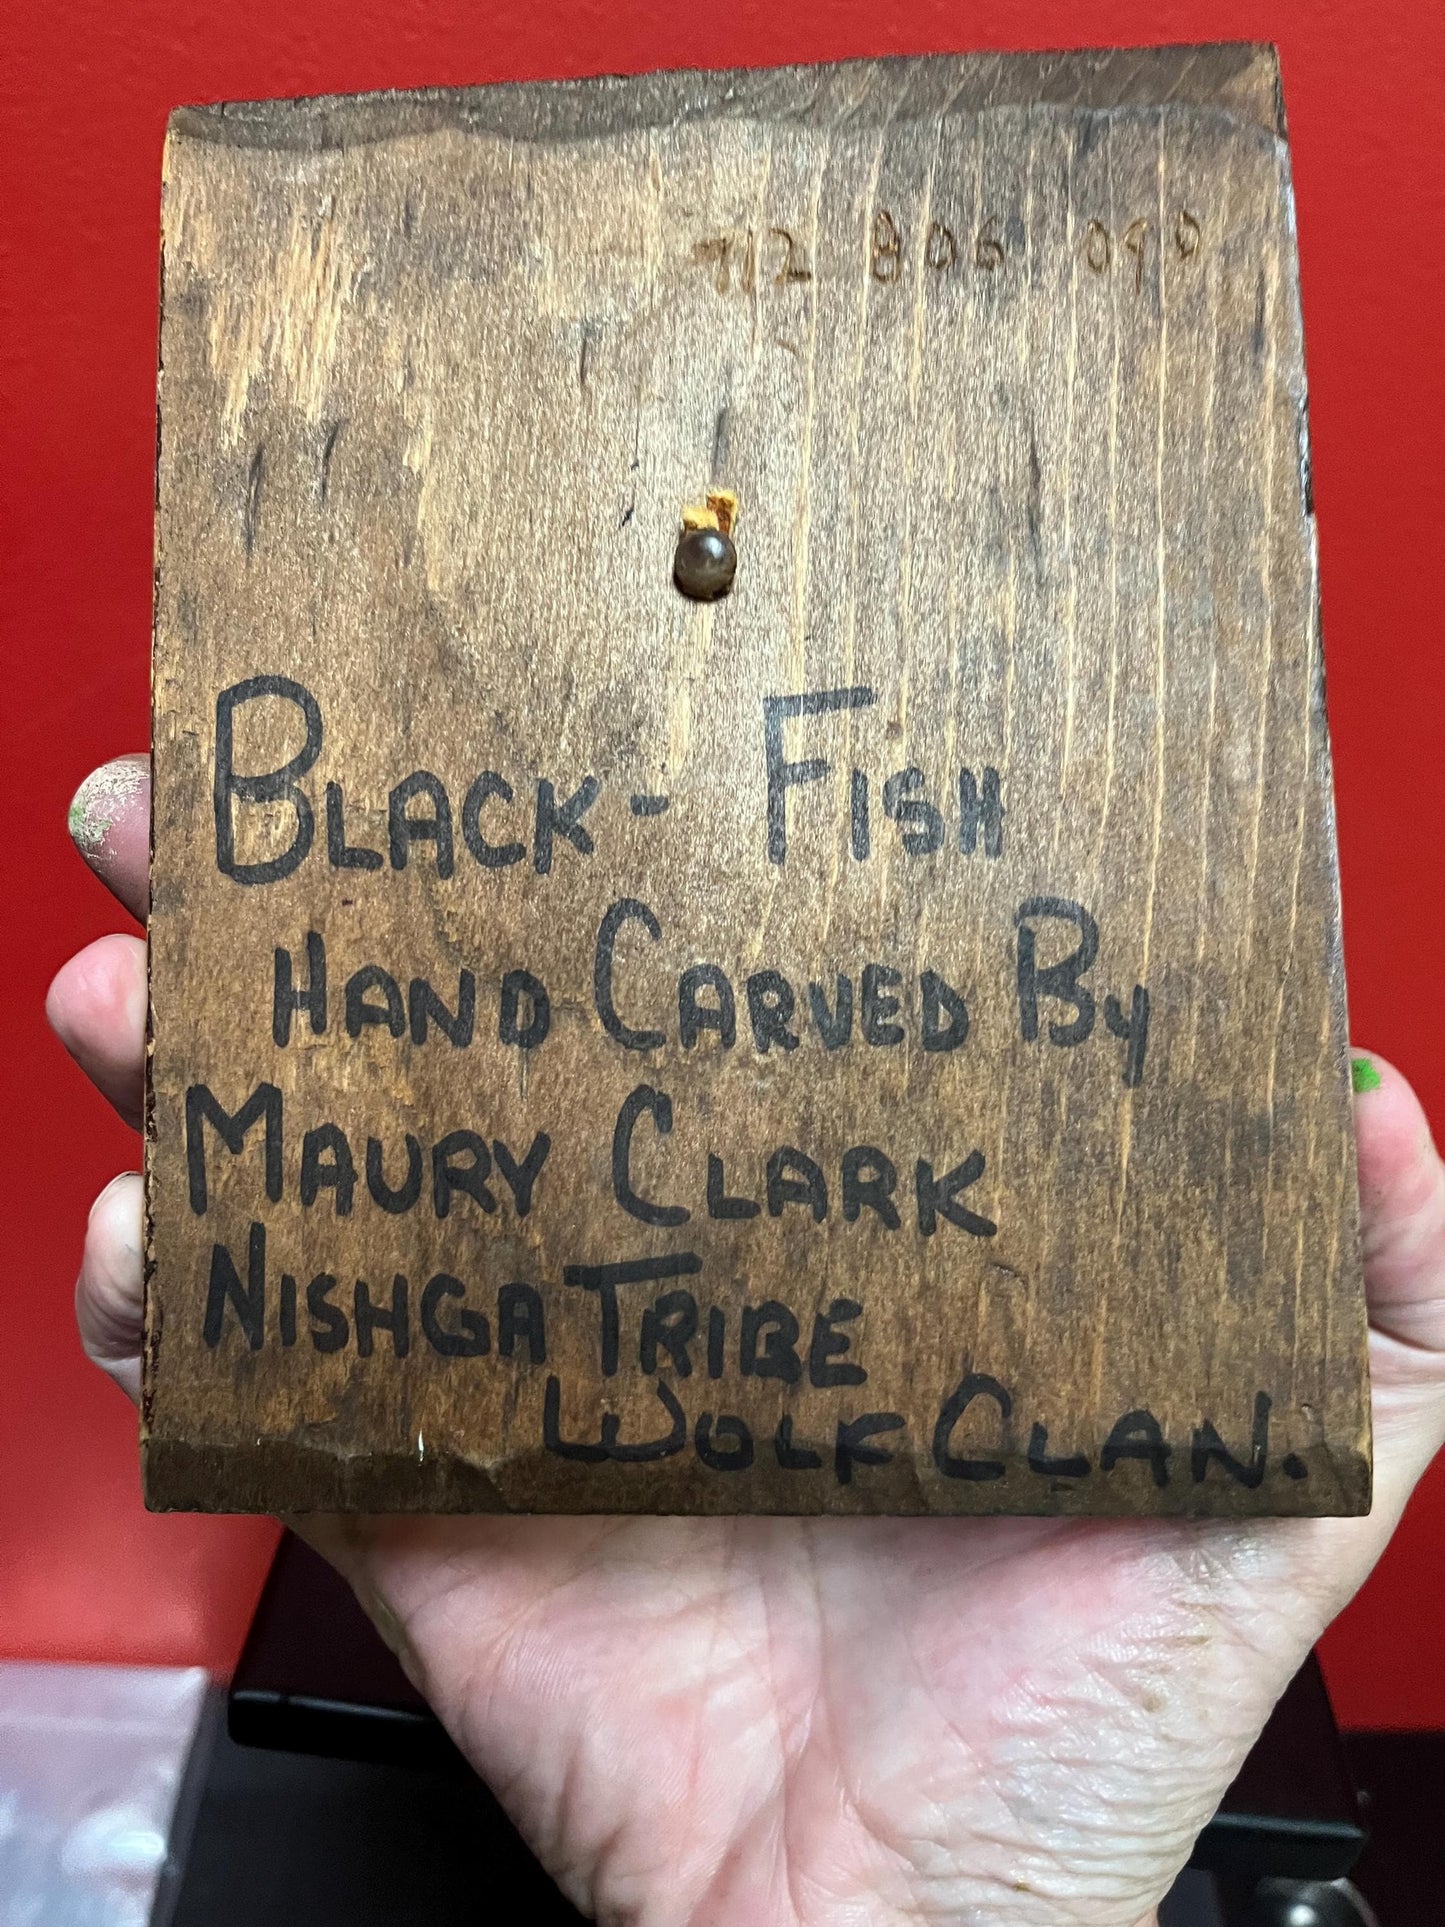 712 806 090
BLACK- FISH
HAND CARVED By
MAURY CLARK
NISHGA TRIBE
WOLF CLAN.